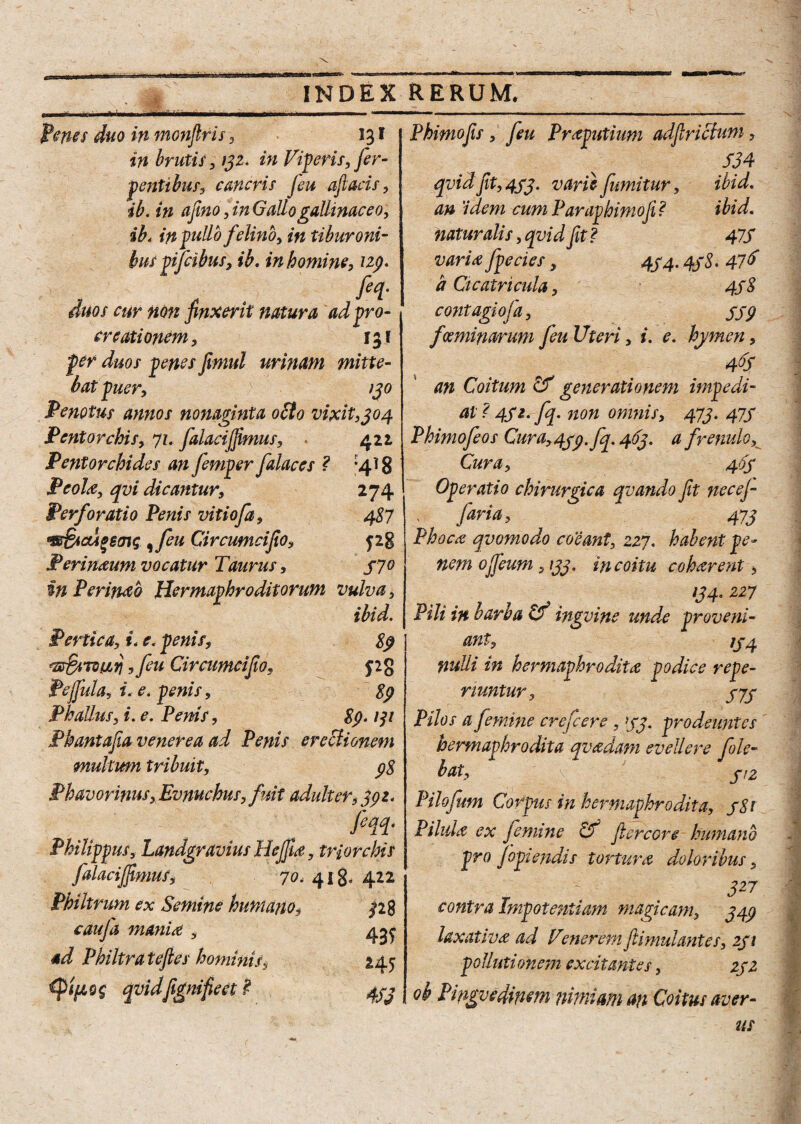 INDEX RERUM.
Penes duo in monſtris, 131
in brutis, 132. in Viperis, ſer-
pentibus, cancris ſeu aſtacis,
ib. in aſino, in Gallo gallinaceo,
ib. in pullo felino, in tiburoni-
bus piſcibus, ib. in homine, 129.
ſeq.
duos cur non finxerit natura ad pro-
creationem, 131
per duos penes ſimul urinam mitte-
bat puer, 130
Penotus annos nonaginta octo vixit, 304
Pentorchis, 71. ſalaciſſimus, 422
Pentorchides an ſemper ſalaces ? 418
Peolæ, qvi dicantur, 274
Perforatio Penis vitioſa, 487
ϖεριαίρεσις, ſeu Circumciſio, 528
Perinæum vocatur Taurus, 570
in Perinæo Hermaphroditorum vulva,
ibid.
Pertica, i. e. penis, 89
ϖεριτομὴ, ſeu Circumciſio, 528
Peſſula, i. e. penis, 89
Phallus, i. e. Penis, 89. 131
Phantaſia venerea ad Penis erectionem
multum tribuit, 98
Phavorinus, Evnuchus, fuit adulter, 392.
ſeqq.
Philippus, Landgravius Heſſiæ, triorchis
ſalaciſſimus, 70. 418. 422
Philtrum ex Semine humano, 328
cauſa maniæ, 435
ad Philtra teſtes hominis, 245
φίμος qvid ſignificet ? 453
Phimoſis, ſeu Præputium adſtrictum,
534
qvid ſit, 453. varie ſumitur, ibid.
an idem cum Paraphimoſi ? ibid.
naturalis, qvid ſit ? 475
variæ ſpecies, 454. 458. 476
à Cicatricula, 458
contagioſa, 559
fœminarum ſeu Uteri, i. e. hymen,
465
an Coitum & generationem impedi-
at ? 452. ſq. non omnis, 473. 475
Phimoſeos Cura, 459. ſq. 463. a frenulo,
Cura, 465
Operatio chirurgica qvando ſit neceſ-
ſaria, 473
Phocæ qvomodo coëant, 227. habent pe-
nem oſſeum, 133. in coitu cohærent,
134. 227
Pili in barba & ingvine unde proveni-
ant, 154
nulli in hermaphroditæ podice repe-
riuntur, 575
Pilos a ſemine creſcere, 153. prodeuntes
hermaphrodita qvædam evellere ſole-
bat, 512
Piloſum Corpus in hermaphrodita, 581
Pilulæ ex ſemine & ſtercore humano
pro ſopiendis torturæ doloribus,
327
contra Impotentiam magicam, 349
laxativæ ad Venerem ſtimulantes, 251
pollutionem excitantes, 252
ob Pingvedinem nimiam an Coitus aver-
us